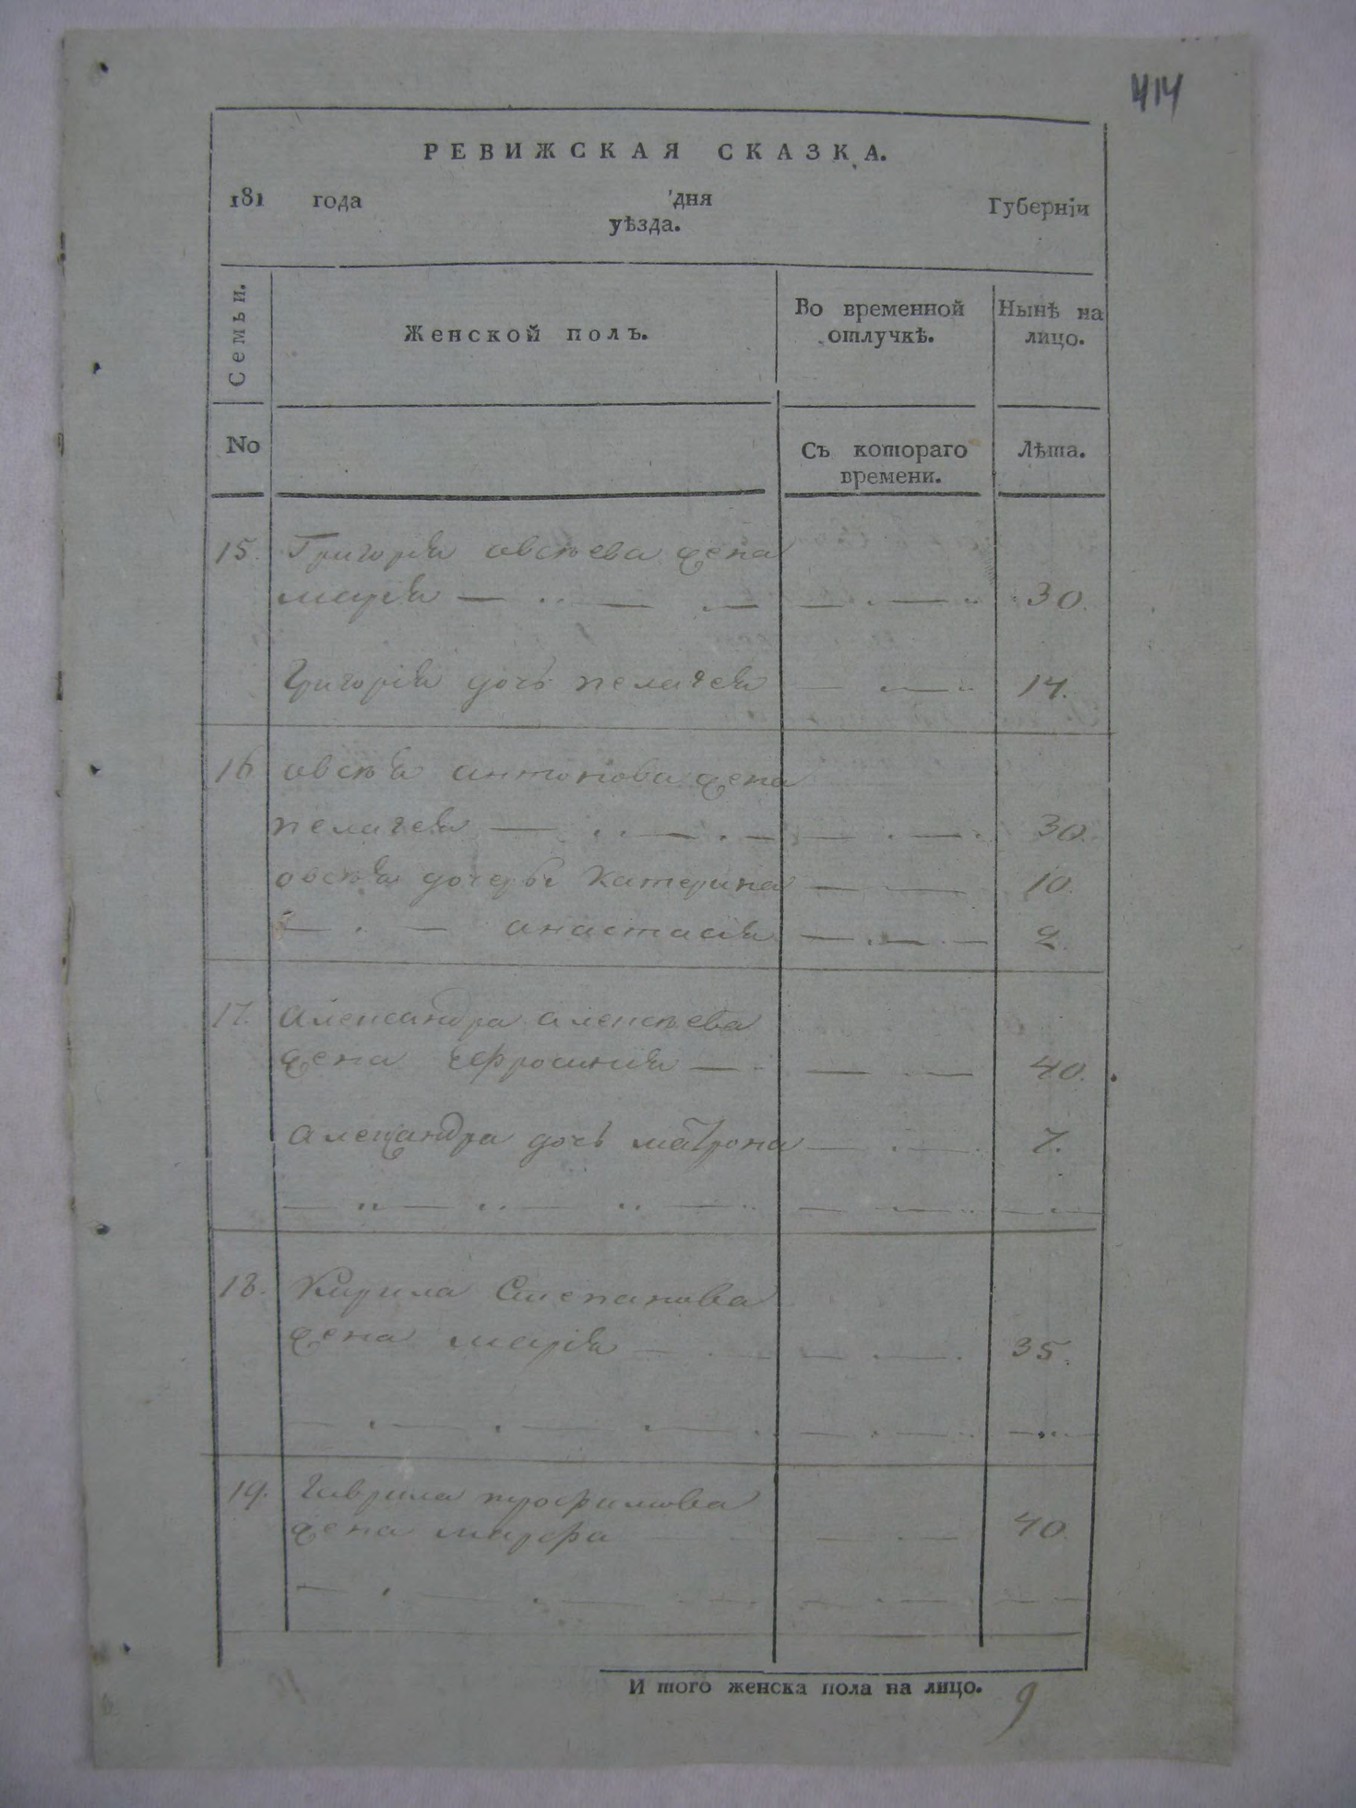 414
РЕВИЖСКАЯ СКАЗКА.
181 года дня Губернїи
уѣзда.
Семьи.
Женской полъ.
Во временной отлучкѣ.
Нынѣ на лицо.
No
Съ котораго времени.
Лѣта.
15. Григорїя овсѣева жена
марїя 30.
Григорїя дочь пелагея 14.
16 овсѣя антонова жена
пелагея 30.
овсѣя дочери Катерина 10.
2 анастасїя 2.
17. Александра алексѣева
жена ефросиния 40.
александра дочь матрона 7.
18. Кирила Степанова
жена марїя 35.
19. Гаврила трофимова
жена марфа 40.
И того женска пола на лицо. 9